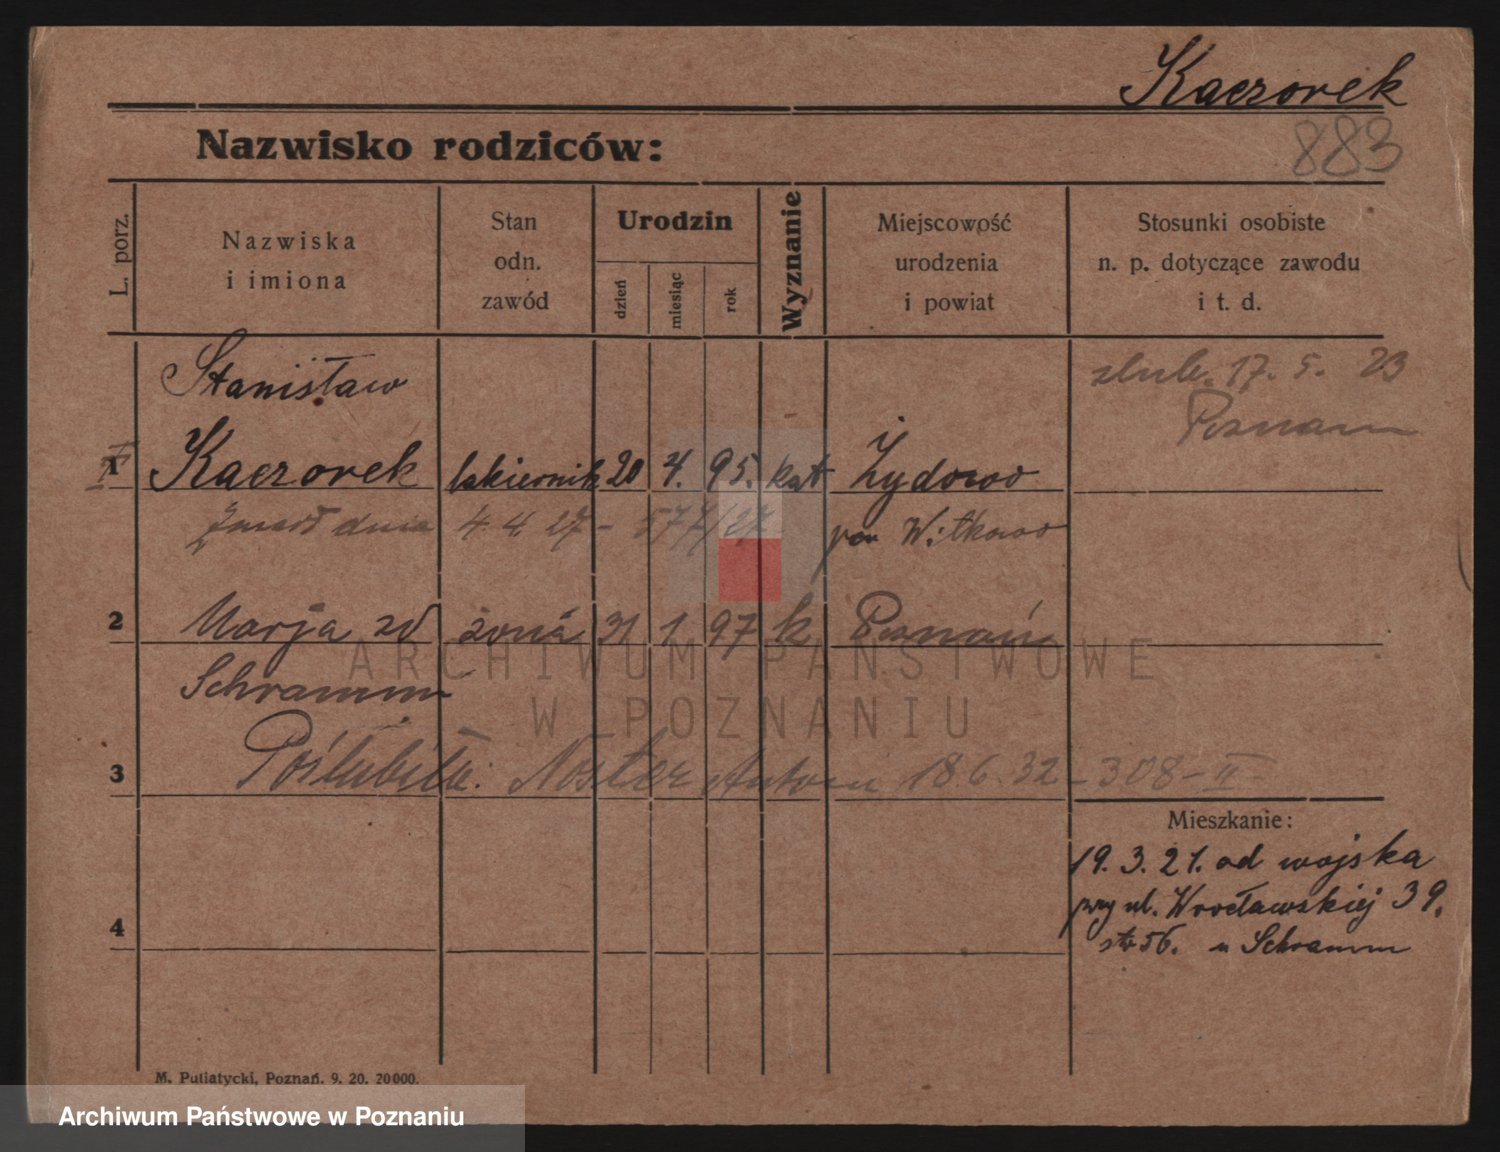 Kaczorek
883
Nazwisko rodziców:
L. porz.
Nazwiska
i imiona
Stan
odn.
zawód
Urodzin
dzień
miesiąc
rok
Wyznanie
Miejscowość
urodzenia
i powiat
Stosunki osobiste
n. p. dotyczące zawodu
i t. d.
Stanisław
ślub. 17. 5. 23
Poznań
1 Kaczorek lakiernik 20 4. 95. kat Żydowo
Zmarł dnia 4. 4. 27 - 577/27 pow Witkowo
2 Marja zd żona 31 1 97 k Poznań
Schramm
3 Poślubiła: Noster Antoni 18 6. 32 - 308 - II
Mieszkanie:
19. 3. 21. od wojska
przy ul. Wrocławskiej 39.
str 56. u Schramm
4
M. Putiatycki, Poznań. 9. 20. 20000.
ARCHIWUM PAŃSTWOWE
W POZNANIU
Archiwum Państwowe w Poznaniu